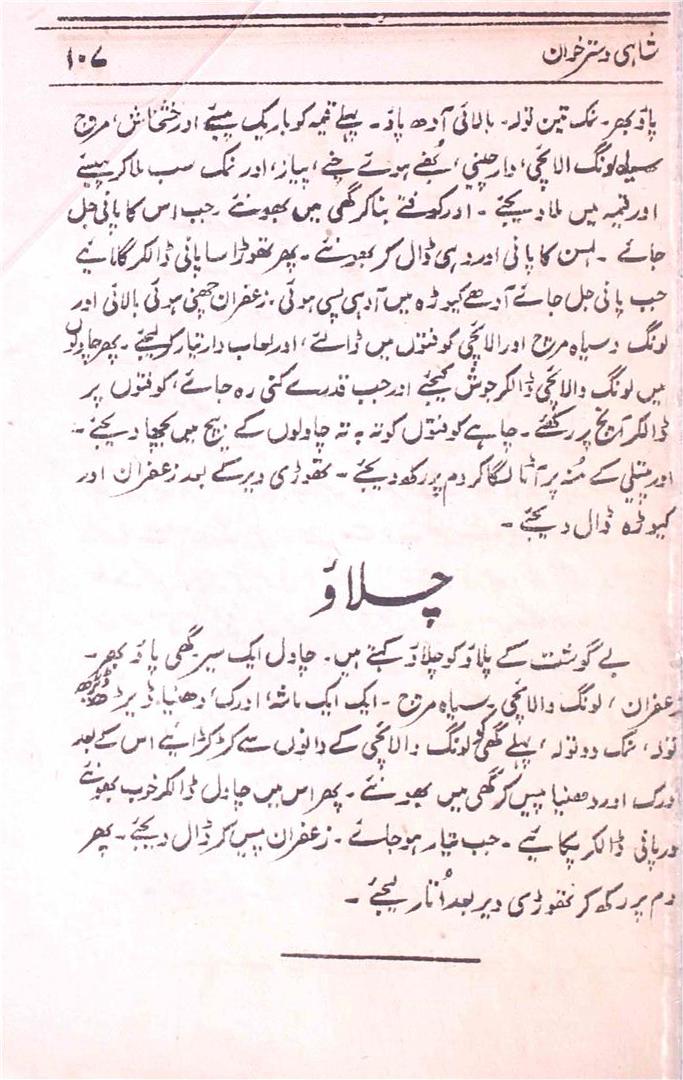 شاہی دسترخوان
۱۰۷
پاؤ بھر۔ نمک تین تولہ۔ بالائی آدھ پاؤ۔ پہلے قیمہ کو باریک پیسئے اور خشخاش، مرچ
سیاہ لونگ الائچی، دارچینی، بھُنے ہوئے چنے، پیاز، اور نمک سب ملا کر پیسئے
اور قیمہ میں ملا دیجئے۔ اور کوفتے بنا کر گھی میں بھونئے۔ جب اس کا پانی جل
جائے۔ لہسن کا پانی اور دہی ڈال کر بھونئے۔ پھر تھوڑا سا پانی ڈالکر گلائیے
جب پانی جل جائے آدھے کیوڑہ میں آدہی پسی ہوئی زعفران چھنی ہوئی بالائی اور
لونگ و سیاہ مرچ اور الائچی کوفتوں میں ڈالئے، اور لعاب دار تیار کر لیجئے۔ پھر چاولوں
میں لونگ و الائچی ڈالکر جوش کیجئے اور جب قدرے کنی رہ جائے، کوفتوں پر
ڈالکر آنچ پر رکھئے۔ چاہے کوفتوں کو تہ بہ تہ چاولوں کے بیچ میں بچھا دیجئے۔
اور پتیلی کے مُنہ پر آٹا لگا کر دم پر رکھ دیجئے۔ تھوڑی دیر کے بعد زعفران اور
کیوڑہ ڈال دیجئے۔
چلاؤ
بے گوشت کے پلاؤ کو چلاؤ کہتے ہیں۔ چاول ایک سیر گھی پاؤ بھر۔
زعفران، لونگ و الائچی سیاہ مرچ۔ ایک ایک ماشہ، ادرک، دھنیا، ڈیڑھ ڈیڑھ
تولہ، نمک دو تولہ، پہلے گھی کو لونگ و الائچی کے دانوں سے کڑکڑائیے اس کے بعد
ادرک اور دھنیا پیس کر گھی میں بھونئے۔ پھر اس میں چاول ڈالکر خوب بھونئے
اور پانی ڈالکر پکائیے۔ جب تیار ہو جائے۔ زعفران پیس کر ڈال دیجئے۔ پھر
دم پر رکھ کر تھوڑی دیر بعد اُتار لیجئے۔